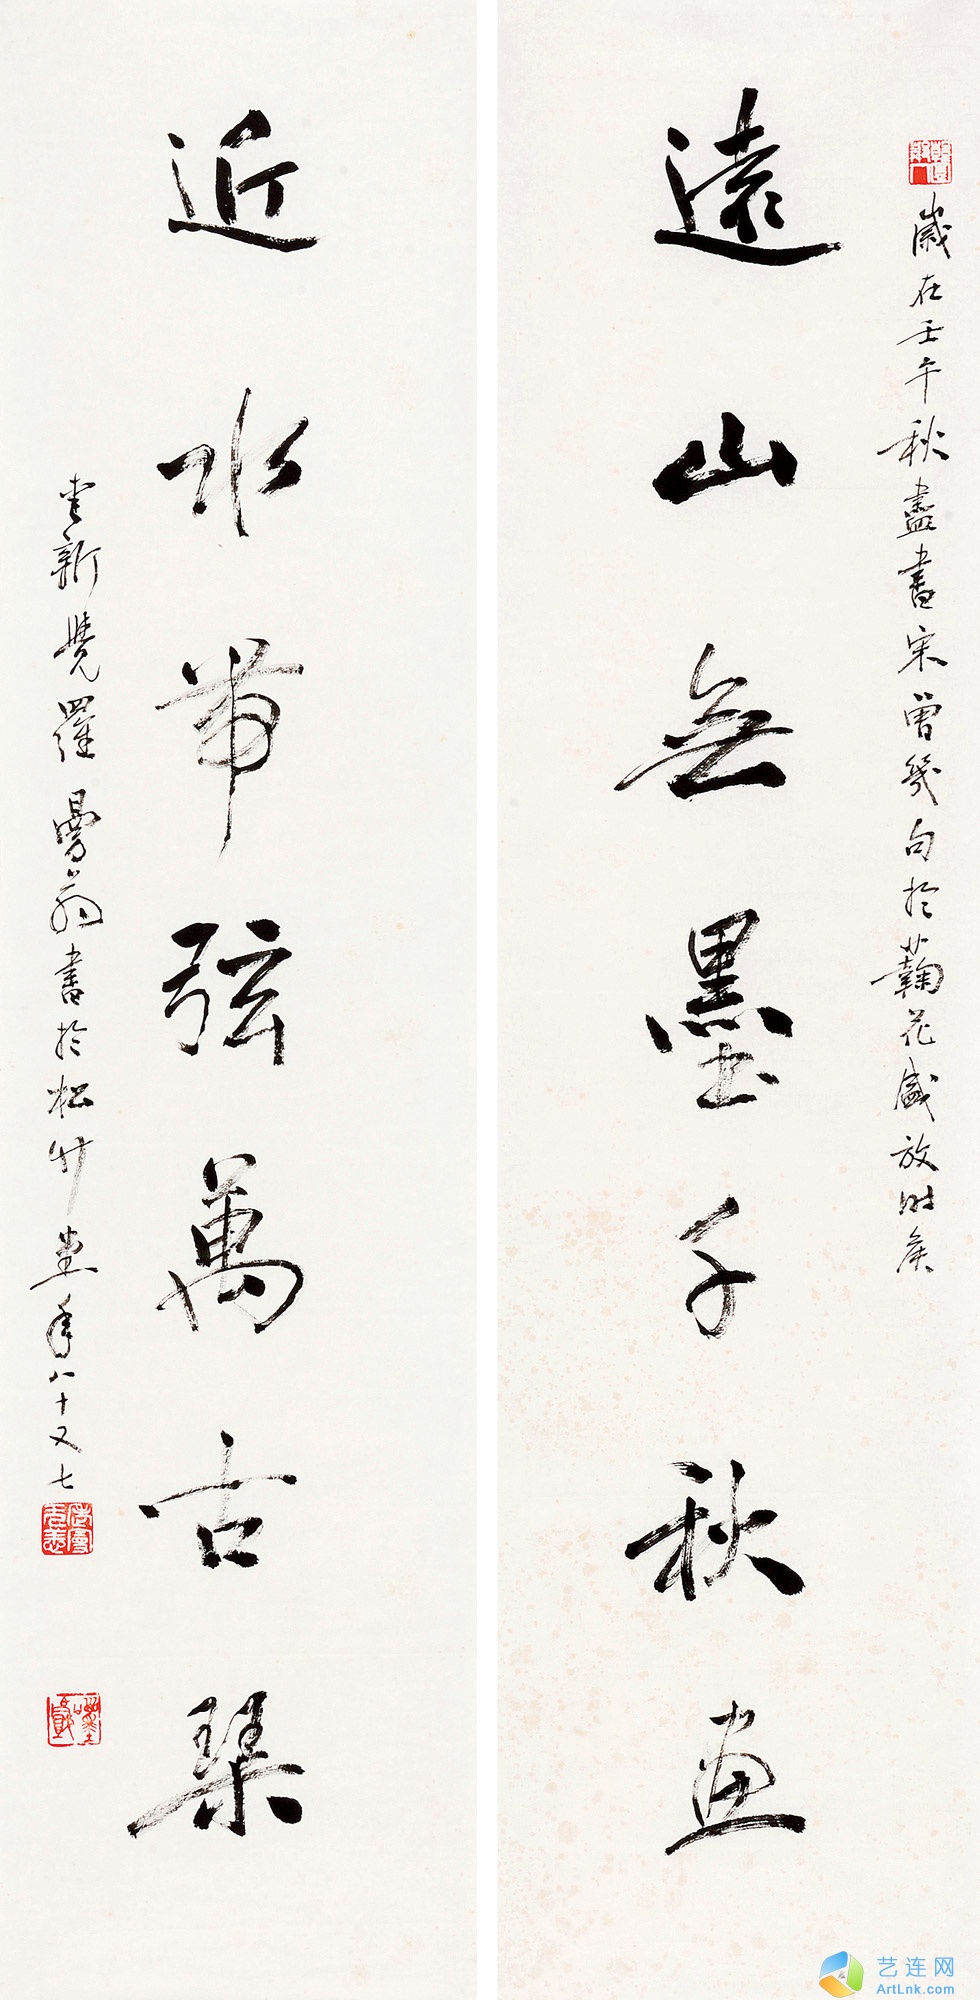 歲在壬午秋盡書宋曾幾句於蘜花盛放时矣
遠山無墨千秋畫
近水帶弦萬古琴
愛新覺羅曼翁書於松竹堂年八十又七
艺连网
ArtLnk.com